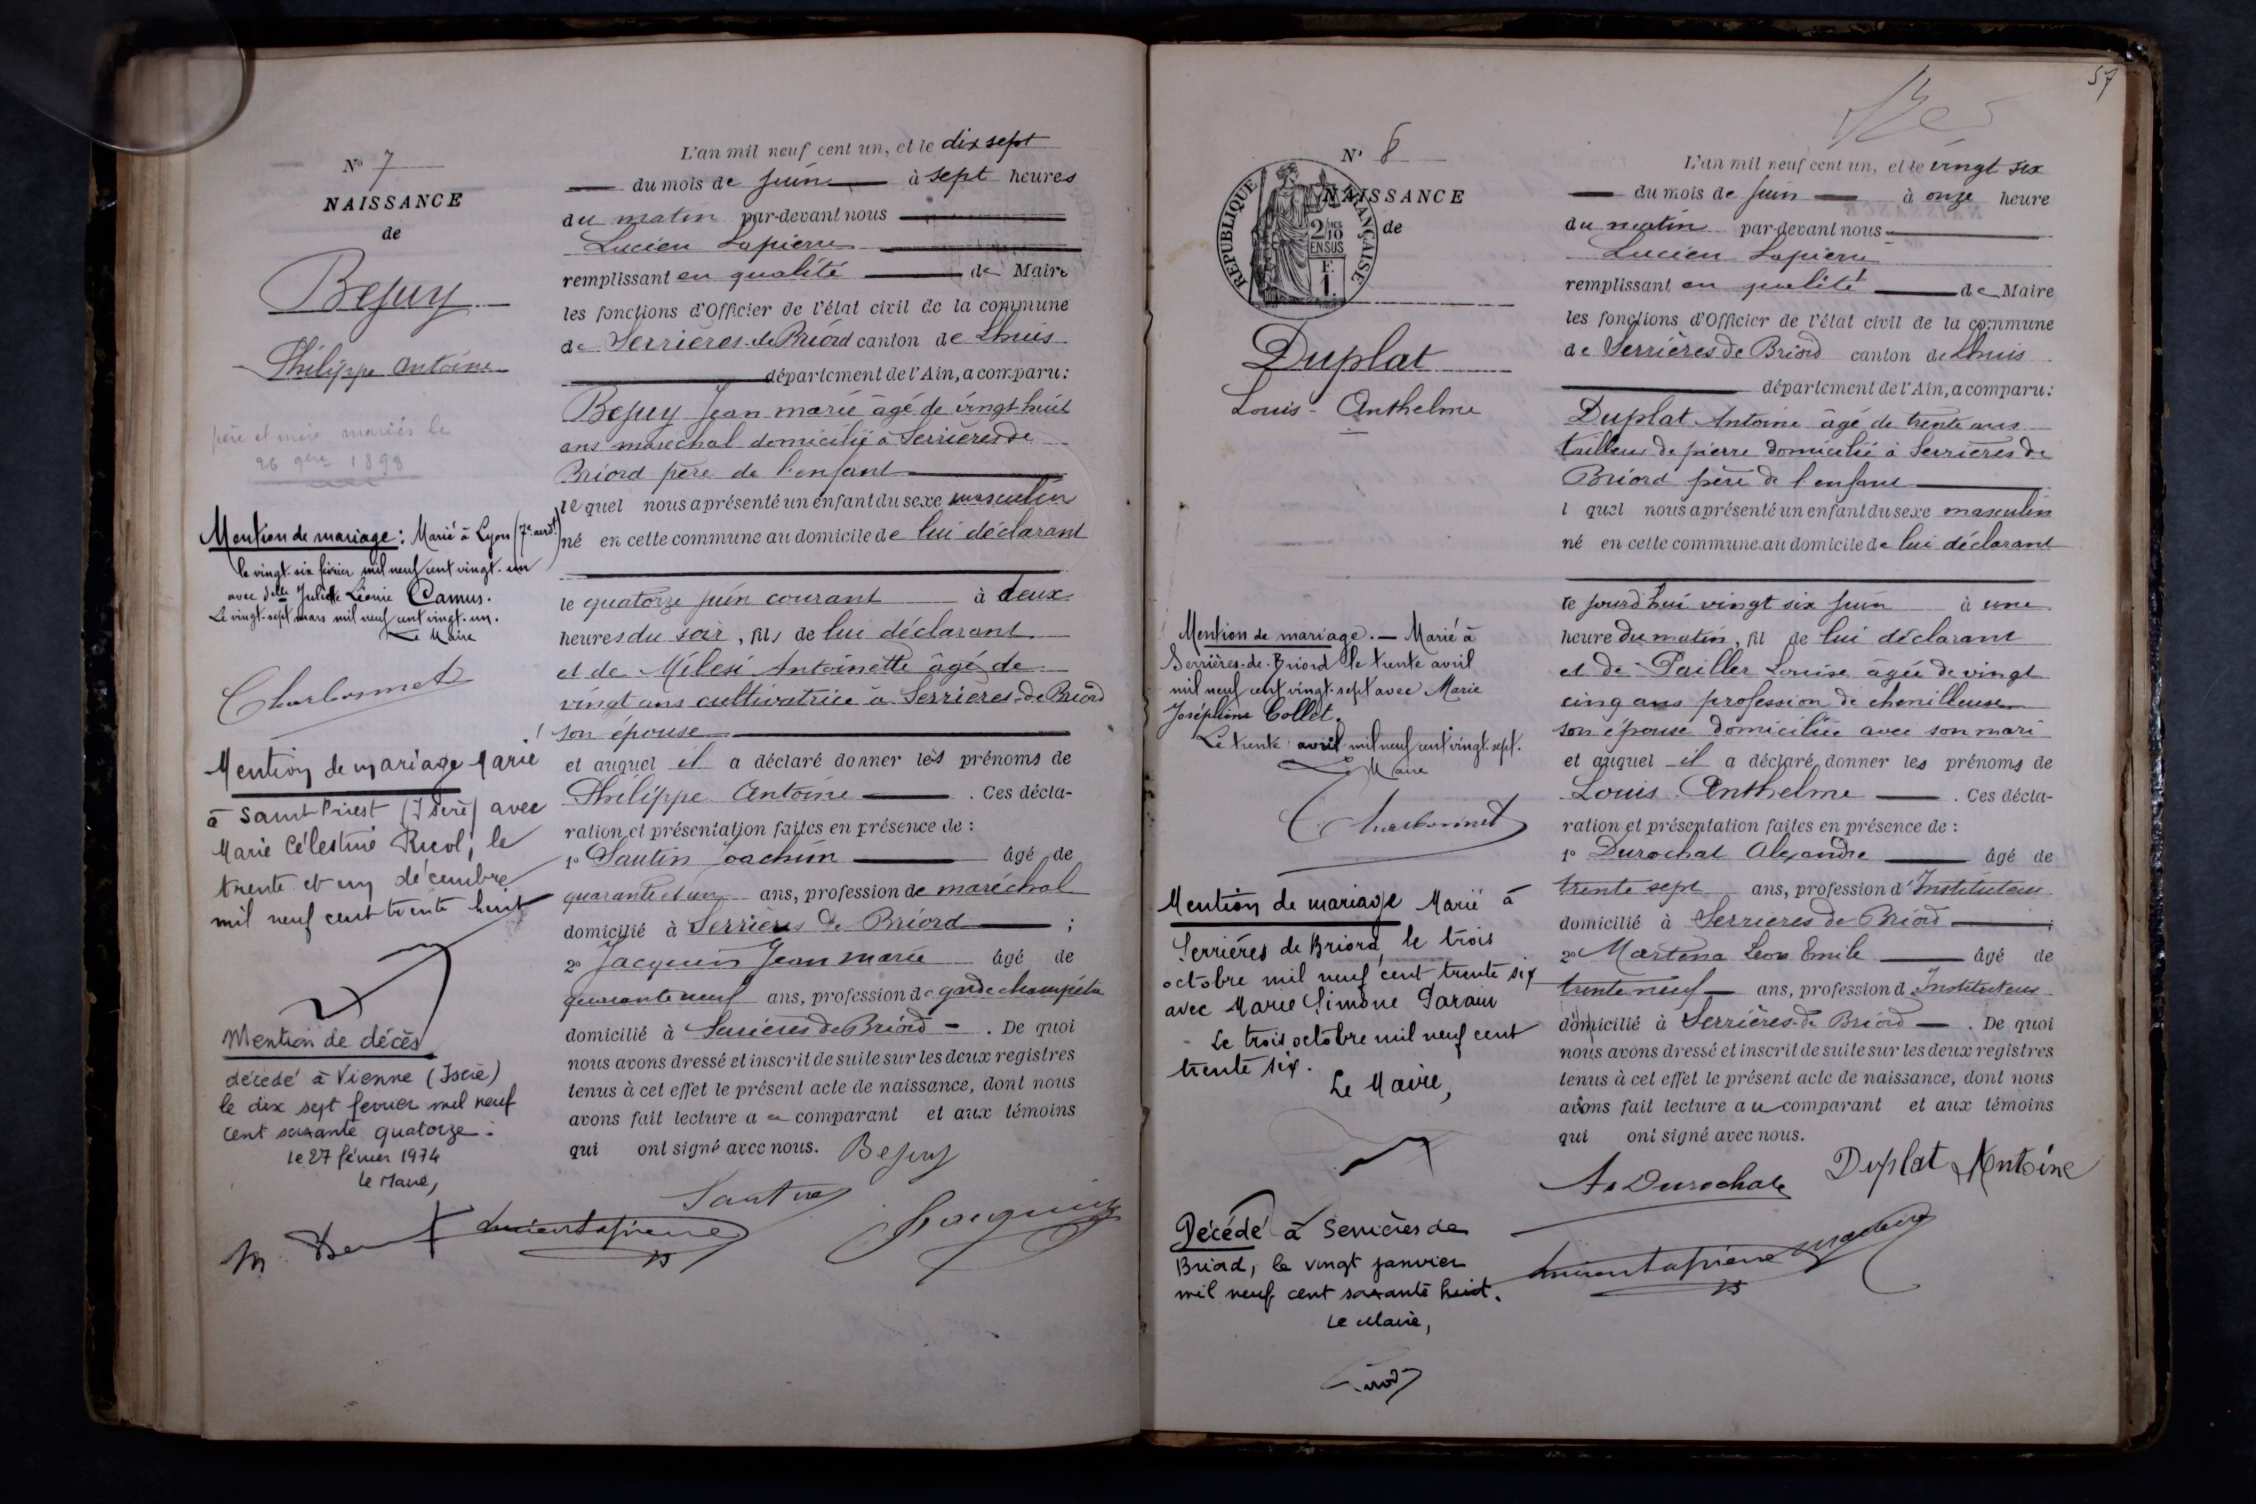 N° 7
NAISSANCE
de
Bejuy
Philippe Antoine
père et mère mariés le
26 9bre 1898
Mention de mariage : Marié à Lyon (7e arrdt)
le vingt-six février mil neuf cent vingt-un
avec Delle Juliette Léonie Camus.
Le vingt-sept mars mil neuf cent vingt-un.
Le Maire
Charbonnet
Mention de mariage Marié
à Saint Priest (Isère) avec
Marie Célestine Ricol, le
trente et un décembre
mil neuf cent trente huit
Mention de décès
décédé à Vienne (Isère)
le dix sept fevrier mil neuf
cent soixante quatorze.
le 27 février 1974
Le Maire,
L'an mil neuf cent un, et le dix sept
du mois de juin à sept heures
du matin par-devant nous
Lucien Lapierre
remplissant en qualité de Maire
les fonctions d'Officier de l'état civil de la commune
de Serrières-de-Briord canton de Lhuis
département de l'Ain, a comparu :
Bejuy Jean marie âgé de vingt-huit
ans maréchal domicilié à Serrières de
Briord père de l'enfant
lequel nous a présenté un enfant du sexe masculin
né en cette commune au domicile de lui déclarant
le quatorze juin courant à deux
heures du soir, fils de lui déclarant
et de Milesi Antoinette âgé de
vingt ans cultivatrice à Serrières-de Briord
son épouse
et auquel il a déclaré donner les prénoms de
Philippe Antoine . Ces décla-
ration et présentation faites en présence de :
1° Sautin Joachim âgé de
quarante et un ans, profession de maréchal
domicilié à Serrières de Briord ;
2° Jacquin Jean marie âgé de
quarante neuf ans, profession de garde champêtre
domicilié à Serrières de Briord . De quoi
nous avons dressé et inscrit de suite sur les deux registres
tenus à cet effet le présent acte de naissance, dont nous
avons fait lecture au comparant et aux témoins
qui ont signé avec nous. Bejuy
Sautin
Jacquin
Lucien Lapierre
57
N° 8
NAISSANCE
de
RÉPUBLIQUE FRANÇAISE
2/10
EN SUS
F.
1.
Duplat
Louis - Anthelme
Mention de mariage. — Marié à
Serrières-de-Briord le trente avril
mil neuf cent vingt-sept avec Marie
Joséphine Collet.
Le trente avril mil neuf cent vingt-sept.
Le Maire
Charbonnet
Mention de mariage Marié à
Serrières de Briord, le trois
octobre mil neuf cent trente six
avec Marie Simone Parain
Le trois octobre mil neuf cent
trente six.
Le Maire,
Décédé à Serrières de
Briord, le vingt janvier
mil neuf cent soixante huit.
Le Maire,
L'an mil neuf cent un, et le vingt six
du mois de juin à onze heure
du matin par-devant nous
Lucien Lapierre
remplissant en qualité de Maire
les fonctions d'Officier de l'état civil de la commune
de Serrières de Briord canton de Lhuis
département de l'Ain, a comparu :
Duplat Antoine âgé de trente ans
tailleur de pierre domicilié à Serrières de
Briord père de l'enfant
l quel nous a présenté un enfant du sexe masculin
né en cette commune au domicile de lui déclarant
le jourd'hui vingt six juin à une
heure du matin, fil de lui déclarant
et de Pailler Louise âgée de vingt
cinq ans profession de chenilleuse
son épouse domiciliée avec son mari
et auquel il a déclaré donner les prénoms de
Louis Anthelme . Ces décla-
ration et présentation faites en présence de :
1° Durochat Alexandre âgé de
trente sept ans, profession d'Instituteur
domicilié à Serrières de Briord ;
2° Martena Leon Emile âgé de
trente neuf ans, profession d Instituteur
domicilié à Serrières-de Briord . De quoi
nous avons dressé et inscrit de suite sur les deux registres
tenus à cet effet le présent acte de naissance, dont nous
avons fait lecture au comparant et aux témoins
qui ont signé avec nous.
A. Durochat Duplat Antoine
Lucien Lapierre